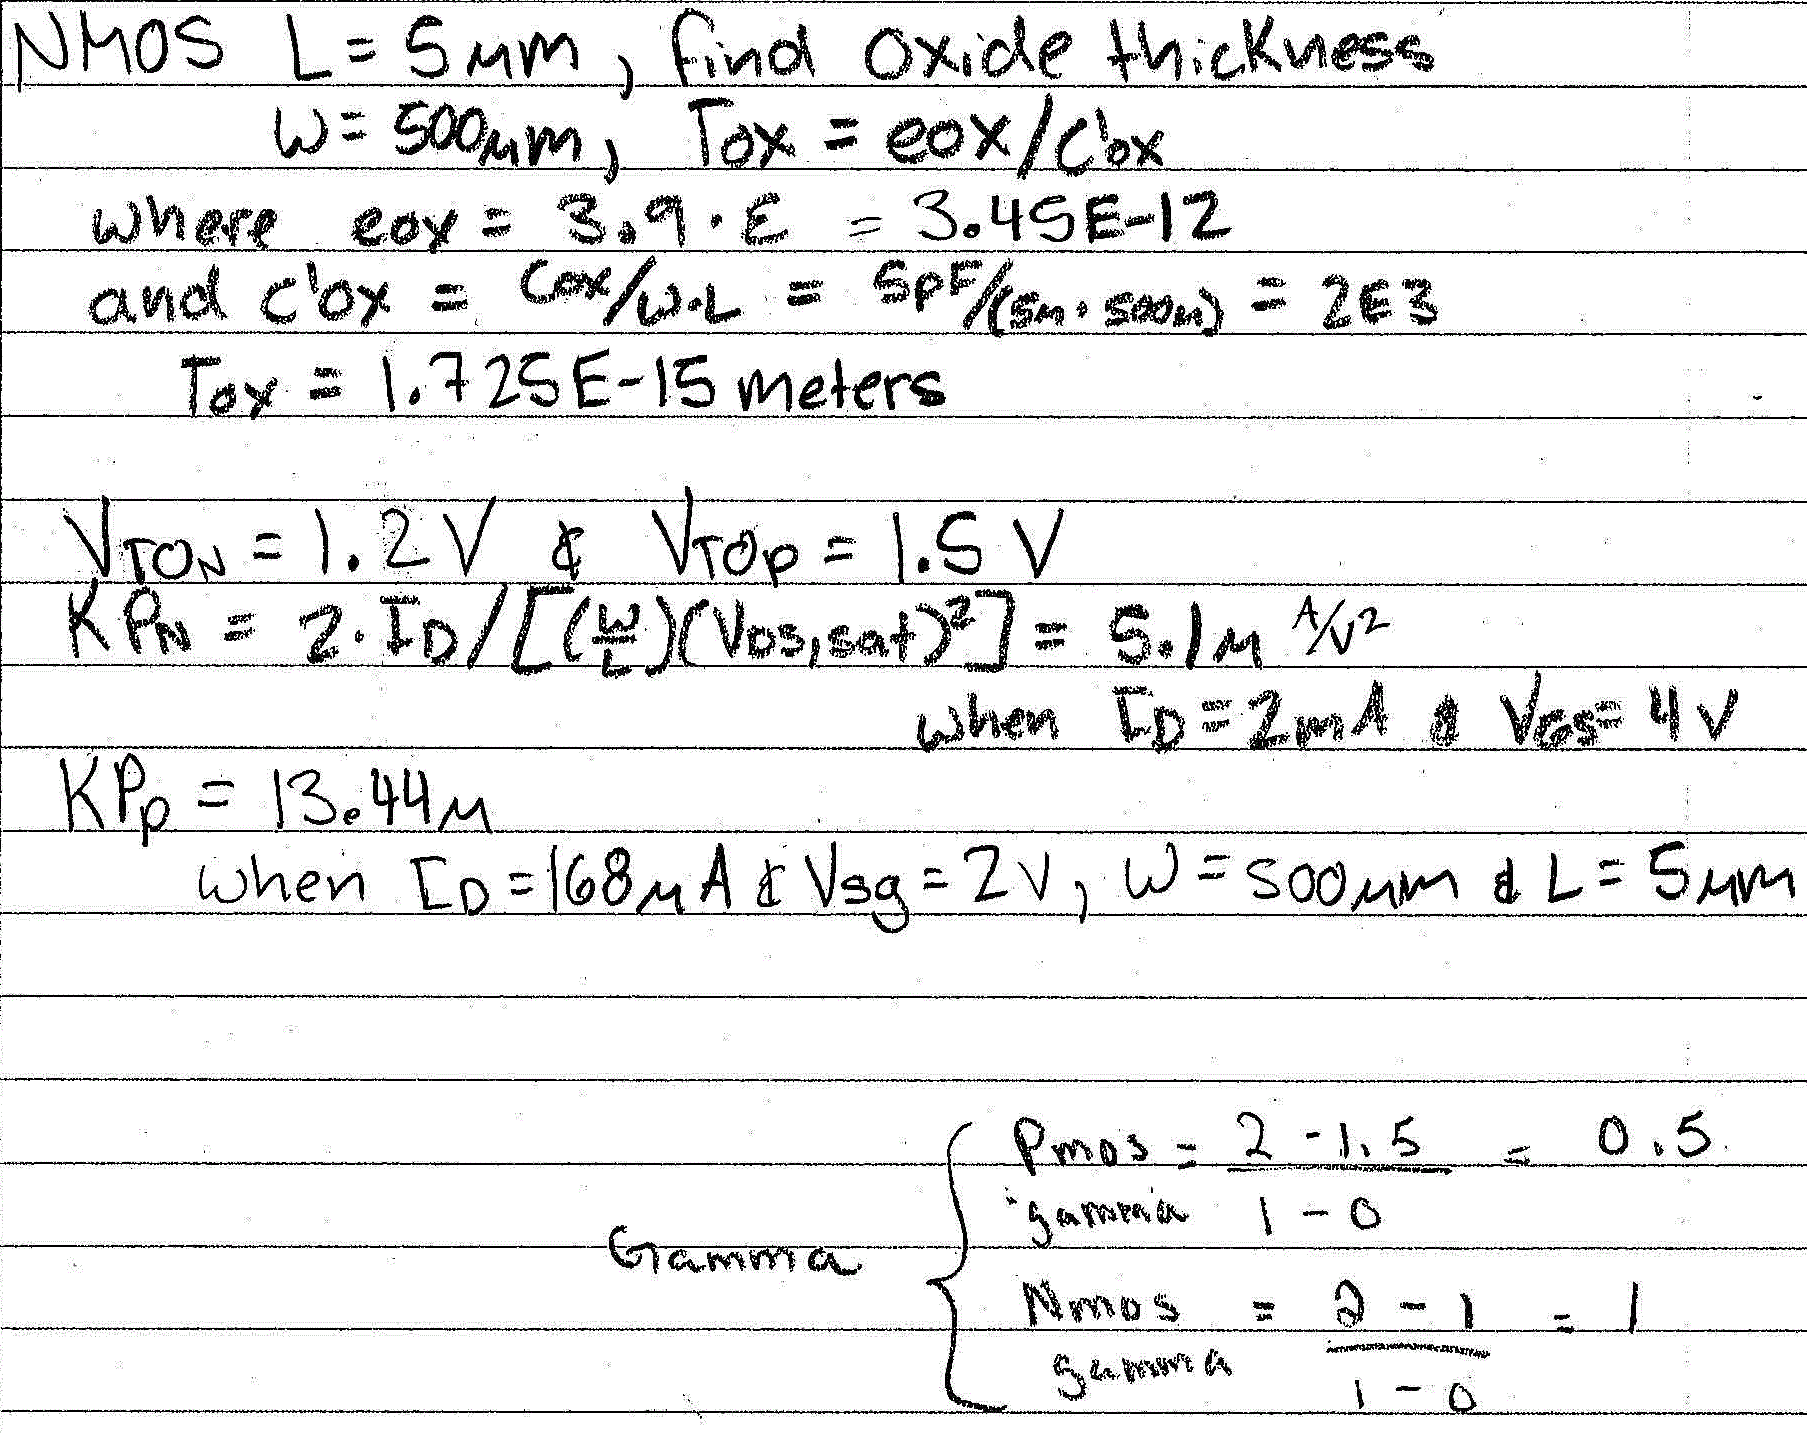 NMOS L = 5 μm, find oxide thickness
W = 500μm, Tox = eox/C'ox
where eox = 3.9 · E = 3.45E-12
and C'ox = Cox/W·L = 5pF/(5μ · 500μ) = 2E3
Tox = 1.725E-15 meters
VTON = 1.2 V & VTOP = 1.5 V
KPN = 2·ID/[(W/L)(VDS,sat)²] = 5.1μ A/V²
when ID = 2mA & VGS = 4V
KPp = 13.44μ
when ID = 168μA & Vsg = 2V, W = 500μm & L = 5μm
Gamma
Pmos gamma = 2 - 1.5 / 1 - 0 = 0.5
Nmos gamma = 2 - 1 / 1 - 0 = 1